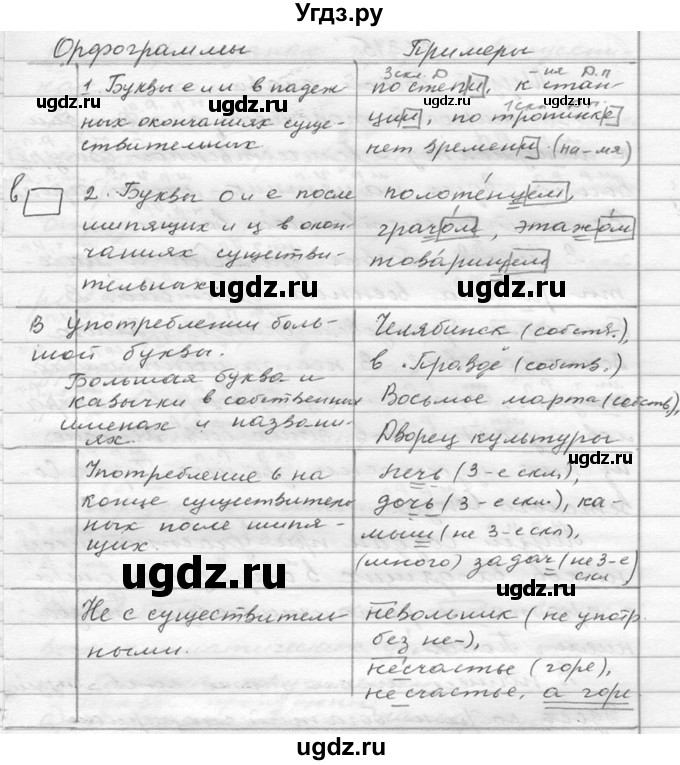 Угдз.ру
Орфограммы Примеры
1. Буквы е и и в падеж-
ных окончаниях суще-
ствительных
3 скл. Д
-ия Д.п
по степи, к стан-
ции, по тропинке
нет времени (на -мя)
в
2. Буквы о и е после
шипящих и ц в окон-
чаниях существи-
тельных
полотенцем,
грачом, этажом
товарищем
В употреблении боль-
шой буквы.
Большая буква и
кавычки в собственных
именах и названи-
ях.
Челябинск (собств.),
в "Правде" (собств.)
Восьмое марта (собств),
Дворец культуры
Употребление ь на
конце существитель
ных после шипя-
щих.
печь (3-е скл.),
дочь (3-е скл.), ка-
мыш (не 3-е скл),
(много) задач (не 3-е
скл)
Не с существитель-
ными.
невольник (не употр.
без не-),
несчастье (горе),
не счастье, а горе
ugdz.ru
ugdz.ru
ugdz.ru
ugdz.ru
ugdz.ru
ugdz.ru
ugdz.ru
ugdz.ru
ugdz.ru
ugdz.ru
ugdz.ru
ugdz.ru